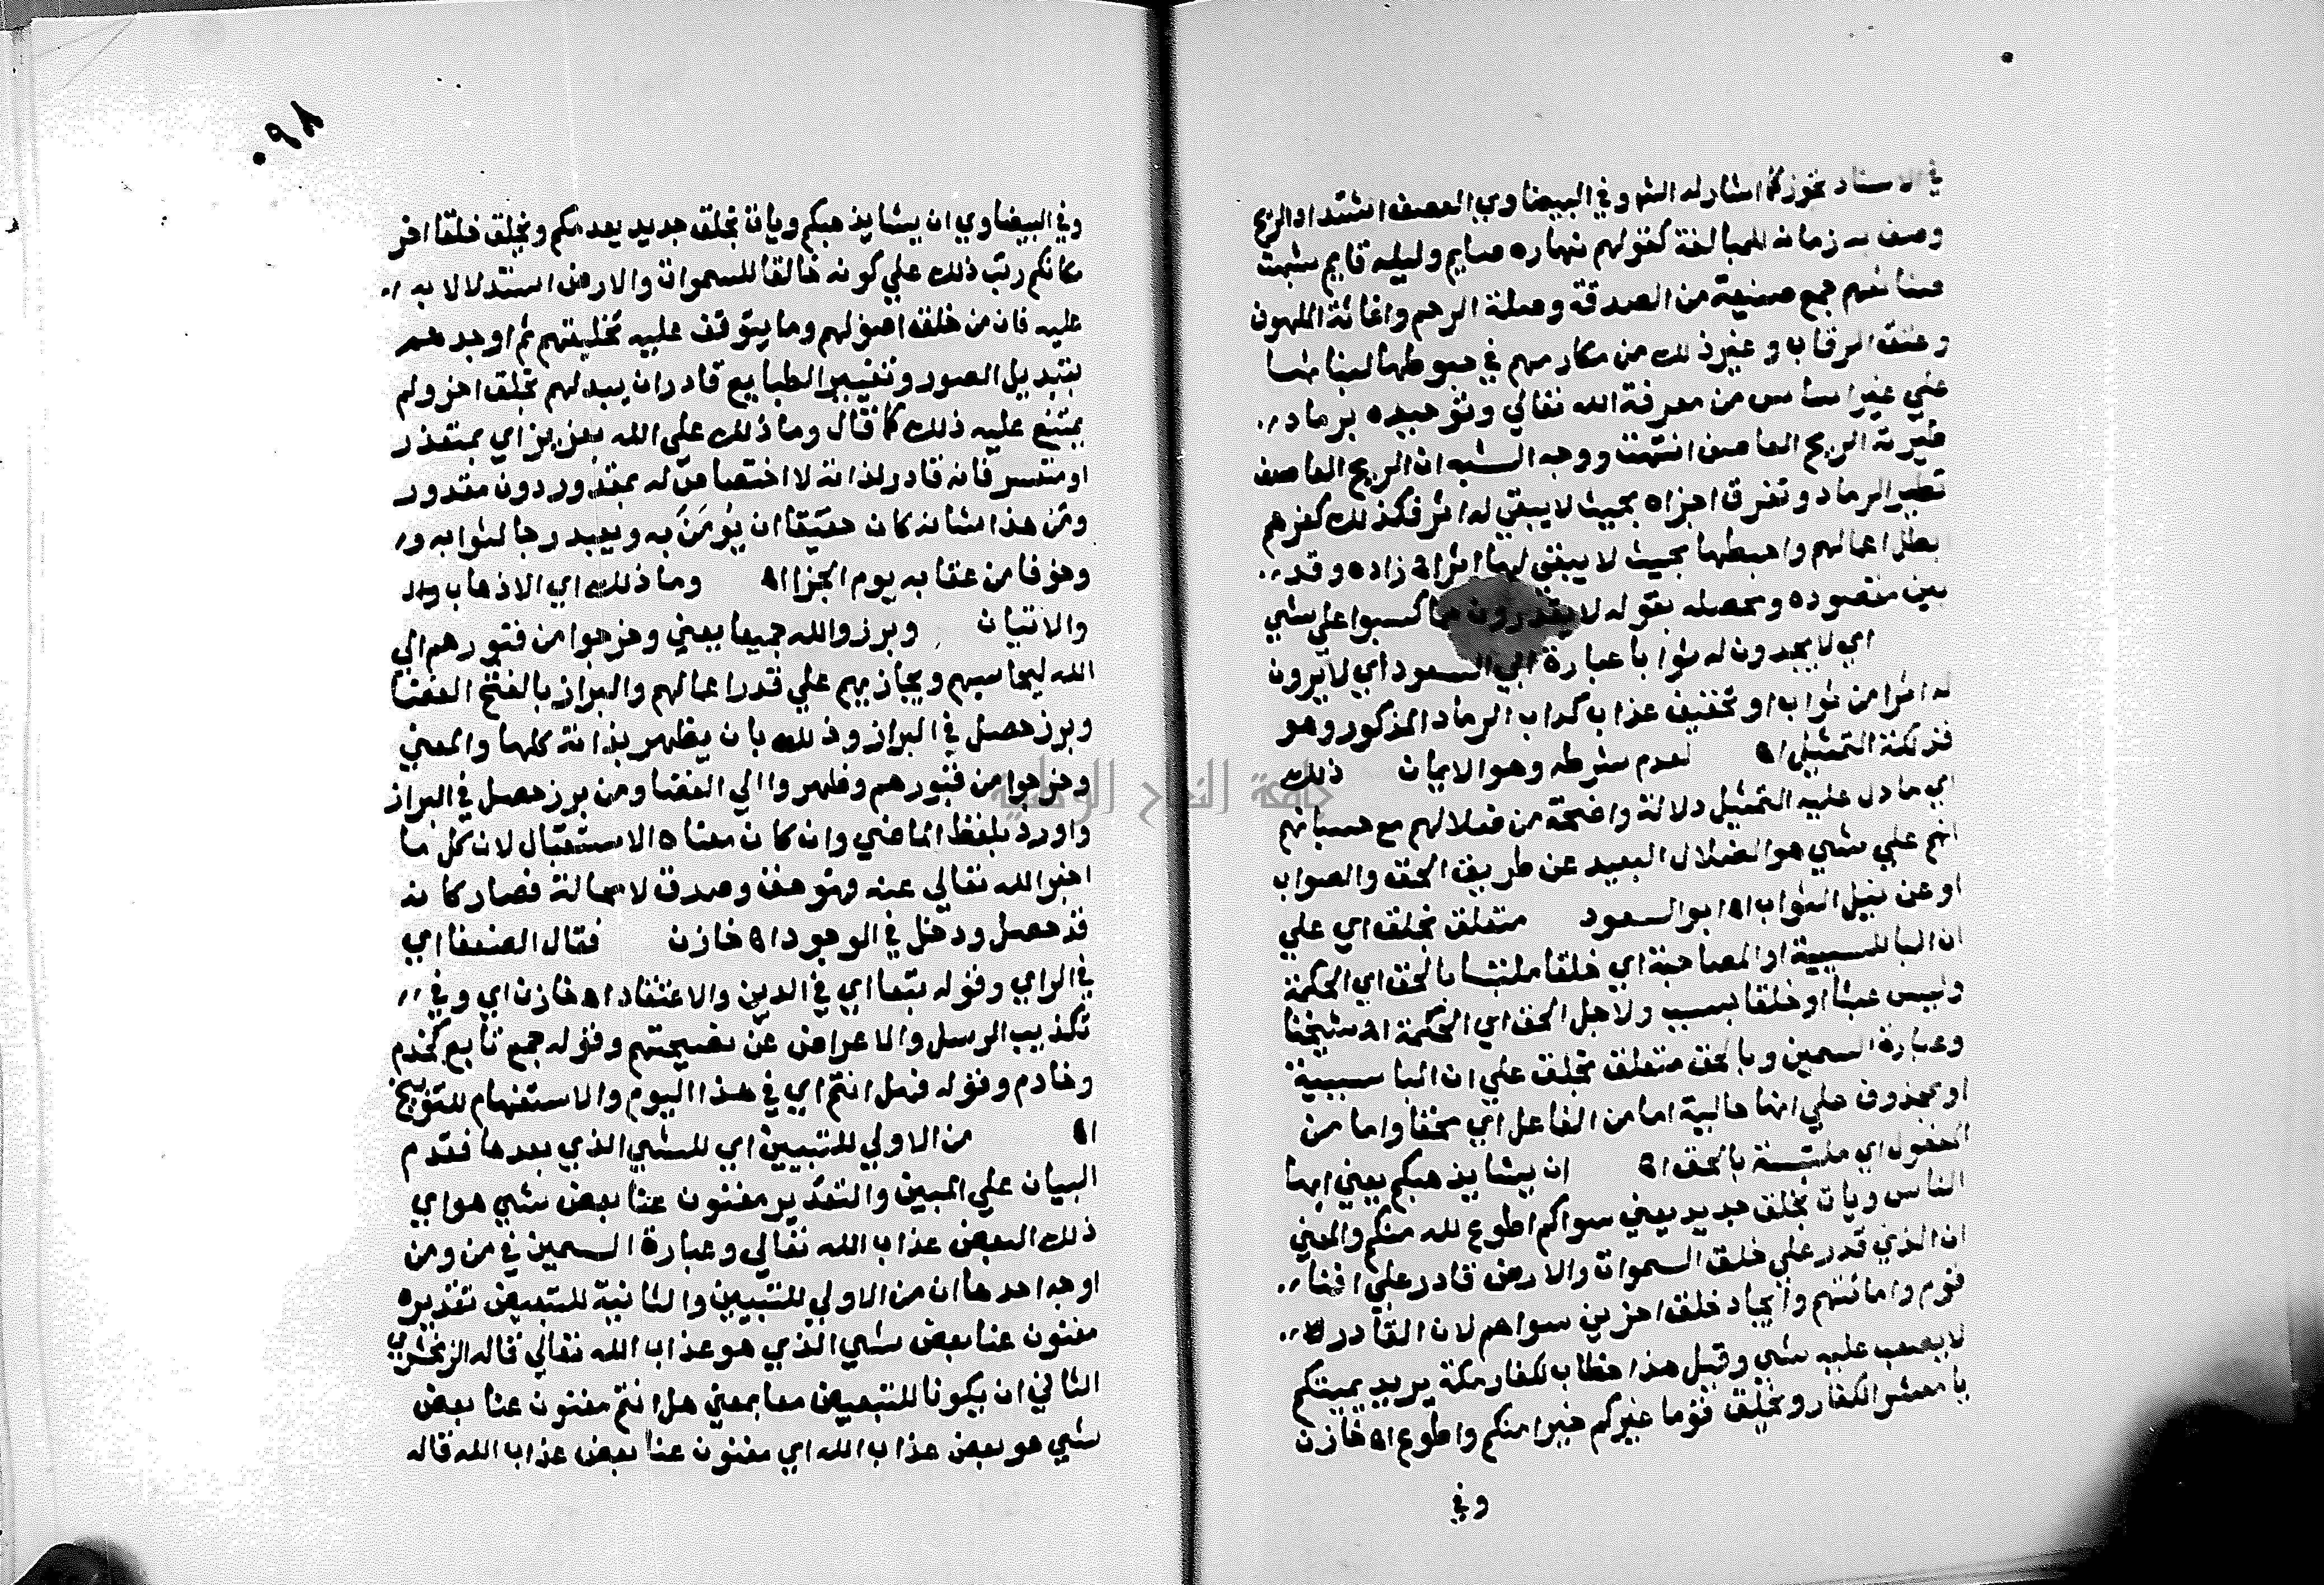 في الاسناد تجوز كما اشار له الشهـ وفي البيضاوي العصف اشتداد الريح
وصف به زمانه للمبالغة كقولهم نهاره صايم وليله قايم شبهت
صنائعهم جمع صنيعة من الصدقة وصلة الرحم واغاثة الملهوف
وعتق الرقاب وغير ذلك من مكارمهم في حبوطها لبنائها
علي غير اساس من معرفة الله تعالي وتوحيده برماد
طيرته الريح العاصف انتهت ووجه الشبه ان الريح العاصف
تطير الرماد وتفرق اجزاه بحيث لا يبقي له اثر فكذلك كفرهم
ابطل اعمالهم واحبطها بحيث لا يبقي لها اثر اه زاده وقد
بين مقصوده ومحصله بقوله لا يقدرون مما كسبوا علي شي
اي لا يجدون له ثوابا عبارة ابي السعود اي لا يرون
له اثرا من ثواب او تخفيف عذاب كداب الرماد المذكور وهو
فذلكة التمثيل اه لعدم شرطه وهو الايمان ذلك
اي ما دل عليه التمثيل دلالة واضحة من ضلالهم مع حسبانهم
انهم علي شي هو الضلال البعيد عن طريق الحق والصواب
او عن نيل الثواب اه ابو السعود متعلق بخلق اي علي
ان البا للسببية او المصاحبة اي خلقا ملتبسا بالحق اي الحكمة
وليس عبثا او خلقا بسبب ولاجل الحق اي الحكمة اه شيخنا
وعبارة السمين وبالحق متعلق بخلق علي ان البا سببية
او بمحذوف علي انها حالية اما من الفاعل اي محقا واما من
المفعول اي ملتبسة بالحق اه ان يشا يذهبكم يعني ايها
الناس ويات بخلق جديد يعني سواكم اطوع لله منكم والمعني
ان الذي قدر علي خلق السموات والارض قادر علي افنا
قوم واماتتهم وايجاد خلق اخرين سواهم لان القادر
لا يصعب عليه شي وقيل هذا خطاب لكفار مكة يريد يميتكم
يا معشر الكفار ويخلق قوما غيركم خيرا منكم واطوع اه خازن
وفي
٠٩٨
وفي البيضاوي ان يشا يذهبكم ويات بخلق جديد يعدمكم ويخلق خلقا اخر
مكانكم رتب ذلك علي كونه خالقا للسموات والارض استدلالا به
عليه فان من خلق اصولهم وما يتوقف عليه تخليقهم ثم اوجدهم
بتبديل الصور وتغيير الطبايع قادر ان يبدلهم بخلق اخر ولم
يمتنع عليه ذلك كما قال وما ذلك علي الله بعزيز اي بمتعذر
او متعسر فانه قادر لذاته لا اختصاص له بمقدور دون مقدور
ومن هذا شانه كان حقيقا ان يُومَنَ به ويعبد رجا لثوابه و
وخوفا من عقابه يوم الجزا اه وما ذلك اي الاذهاب وال
والاتيان وبرزوا لله جميعا يعني وخرجوا من قبورهم الي
الله ليحاسبهم ويجازيهم علي قدر اعمالهم والبراز بالفتح الفضا
وبرز حصل في البراز وذلك بان يظهر بذاته كلها والمعني
وخرجوا من قبورهم وظهروا الي الفضا ومن برز حصل في البراز
واورد بلفظ الماضي وان كان معناه الاستقبال لان كل ما
اخبر الله تعالي عنه فهو حق وصدق لا محالة فصار كانه
قد حصل ودخل في الوجود اه خازن فقال الضعفا اي
في الراي وقوله تبعا اي في الدين والاعتقاد اه خازن اي وفي
تكذيب الرسل والاعراض عن نصيحتهم وقوله جمع تابع كخدم
وخادم وقوله فهل انتم اي في هذا اليوم والاستفهام للتوبيخ
اه من الاولي للتبيين اي للشي الذي بعدها فقدم
البيان علي المبين والتقدير مغنون عنا بعض شي هو اي
ذلك البعض عذاب الله تعالي وعبارة السمين في من ومن
اوجه احدها ان من الاولي للتبيين والثانية للتبعيض تقديره
مغنون عنا بعض شي الذي هو عذاب الله تعالي قاله الزمخشري
الثاني ان يكونا للتبعيض معا بمعني هل انتم مغنون عنا بعض
شي هو بعض عذاب الله اي مغنون عنا بعض عذاب الله قاله
جامعة النجاح الوطنية